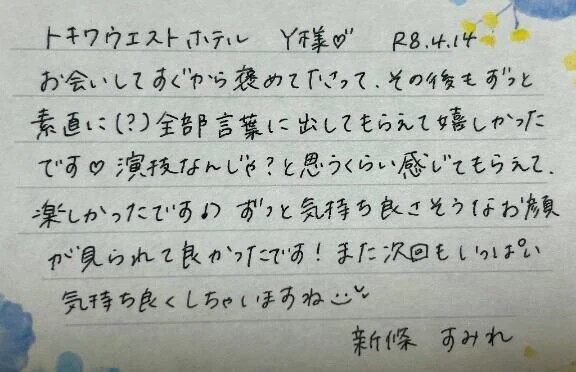 トキワウエストホテル Y様♡ R8.4.14
お会いしてすぐから褒めて下さって、その後もずっと
素直に(?)全部言葉に出してもらえて嬉しかった
です♡ 演技なんじゃ?と思うくらい感じてもらえて、
楽しかったです♪ ずっと気持ち良さそうなお顔
が見られて良かったです! また次回もいっぱい
気持ち良くしちゃいますね
新條 すみれ